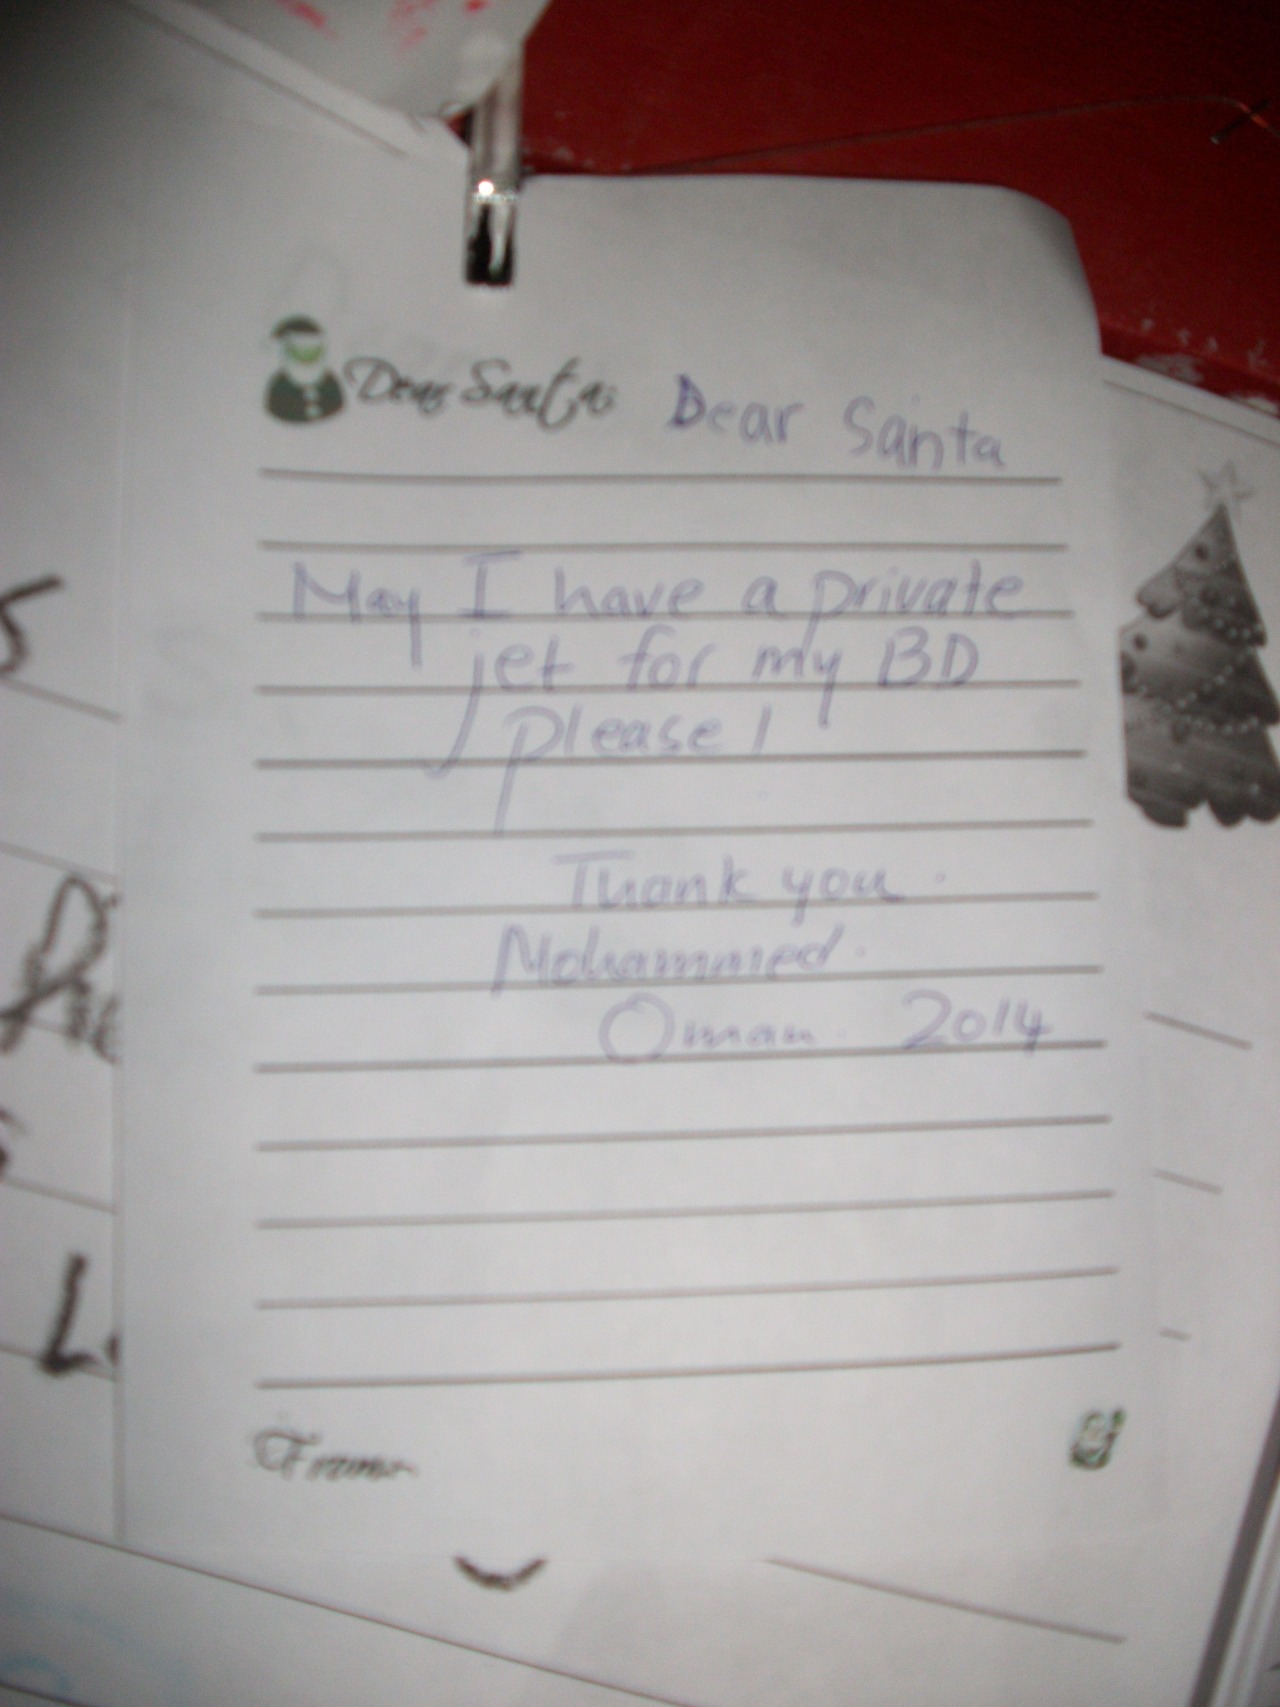 Dear Santa: Dear Santa
May I have a private
jet for my BD
please!
Thank you.
Mohammed.
Oman. 2014
From